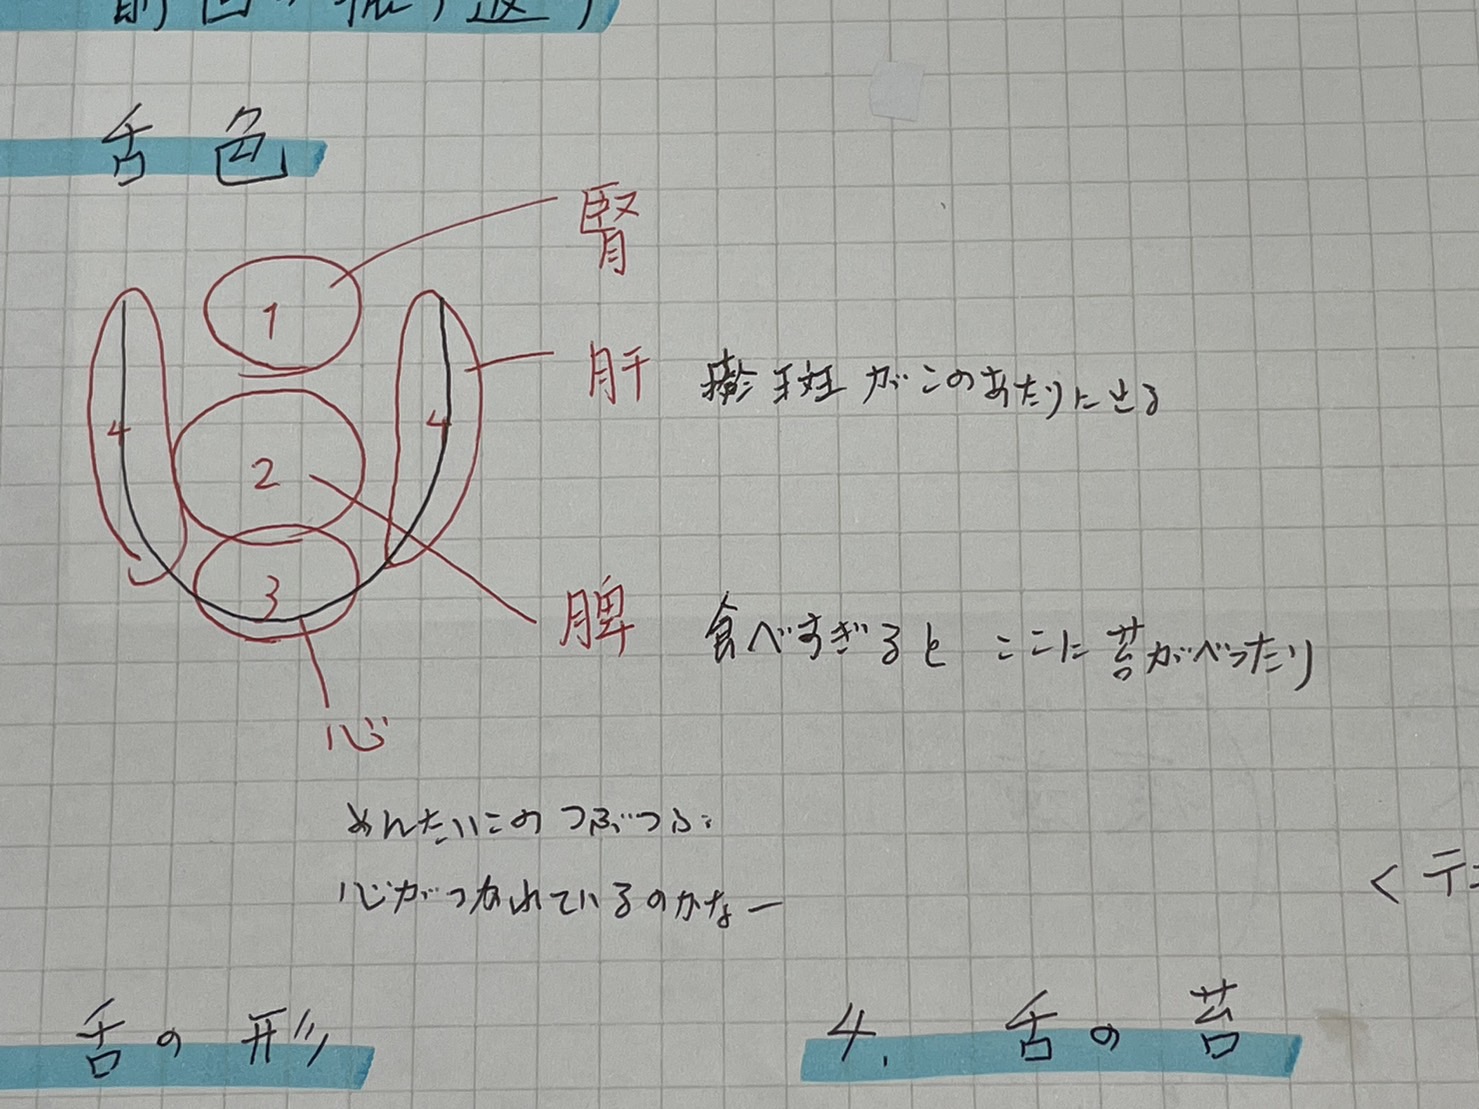 前回の振り返り
舌色
腎
1
肝
がこのあたりに出る
4
4
2
3
脾
食べすぎると ここに苔がべったり
心
めんたいこのつぶつぶ
心がつかれているのかなー
< テ
舌の形
4. 舌の苔